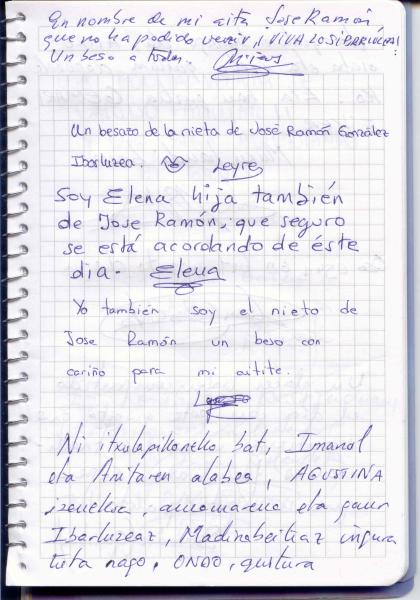 En nombre de mi aita Jose Ramón,
que no ha podido venir, ¡VIVA LOS IBARLUCEA!
Un beso a todos.
Un besazo de la nieta de José Ramón González
Ibarluzea. Leyre
Soy Elena hija también
de Jose Ramón, que seguro
se está acordando de éste
día. Elena
Yo también soy el nieto de
Jose Ramón un beso con
cariño para mi aitite.
Ni itxulapikoneko bat, Imanol
eta Anitaren alabea, AGUSTINA
izenekoa, amamarena eta gaur
Ibarluzeaz, Madinabeitiaz ingura
tuta nago, ONDO, gustura